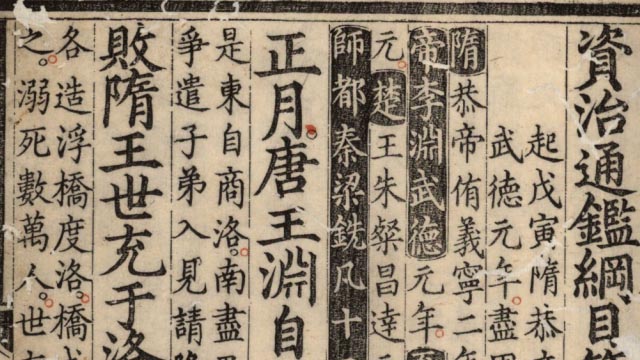 資治通鑑綱目
起戊寅隋恭
武德元年盡
隋恭帝侑義寧二年
帝李淵武德元年
元楚王朱粲昌達元
師都秦梁銑凡十
正月唐王淵自
是東自商洛南盡
爭遣子弟入見請
敗隋王世充于洛
各造浮橋度洛橋
之溺死數萬人世